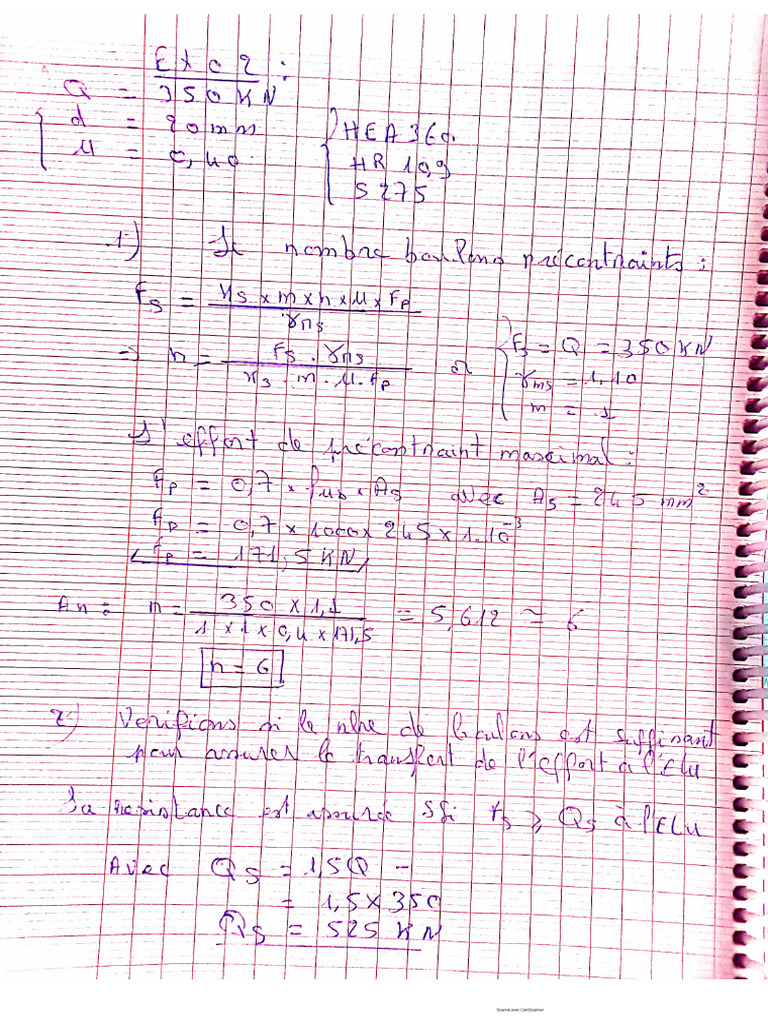 Exo 2 :
Q = 350 KN
d = 20mm
μ = 0,40.
HEA 360.
HR 10,9
S 275
1°) Le nombre boulons précontraints :
Fs = Ks × m × n × μ × Fp / γms
=> n = Fs . γms / Ks . m . μ . Fp or
Fs = Q = 350 KN
γms = 1,10
m = 1
L'effort de précontraint maximal :
Fp = 0,7 × fub × As avec As = 245 mm²
Fp = 0,7 × 1000 × 245 × 1.10⁻³
Fp = 171,5 KN
An : n = 350 × 1,1 / 1 × 1 × 0,4 × 171,5 = 5,612 ≃ 6
n = 6
2°) Verifions si le nbre de boulons est suffisant
pour assurer le transfert de l'effort à l'élu
La resistance est assurée ssi Fs ⩾ Qs à l'ELU
Avec Qs = 1,5Q –
= 1,5 × 350
Qs = 525 KN
Scanné avec CamScanner